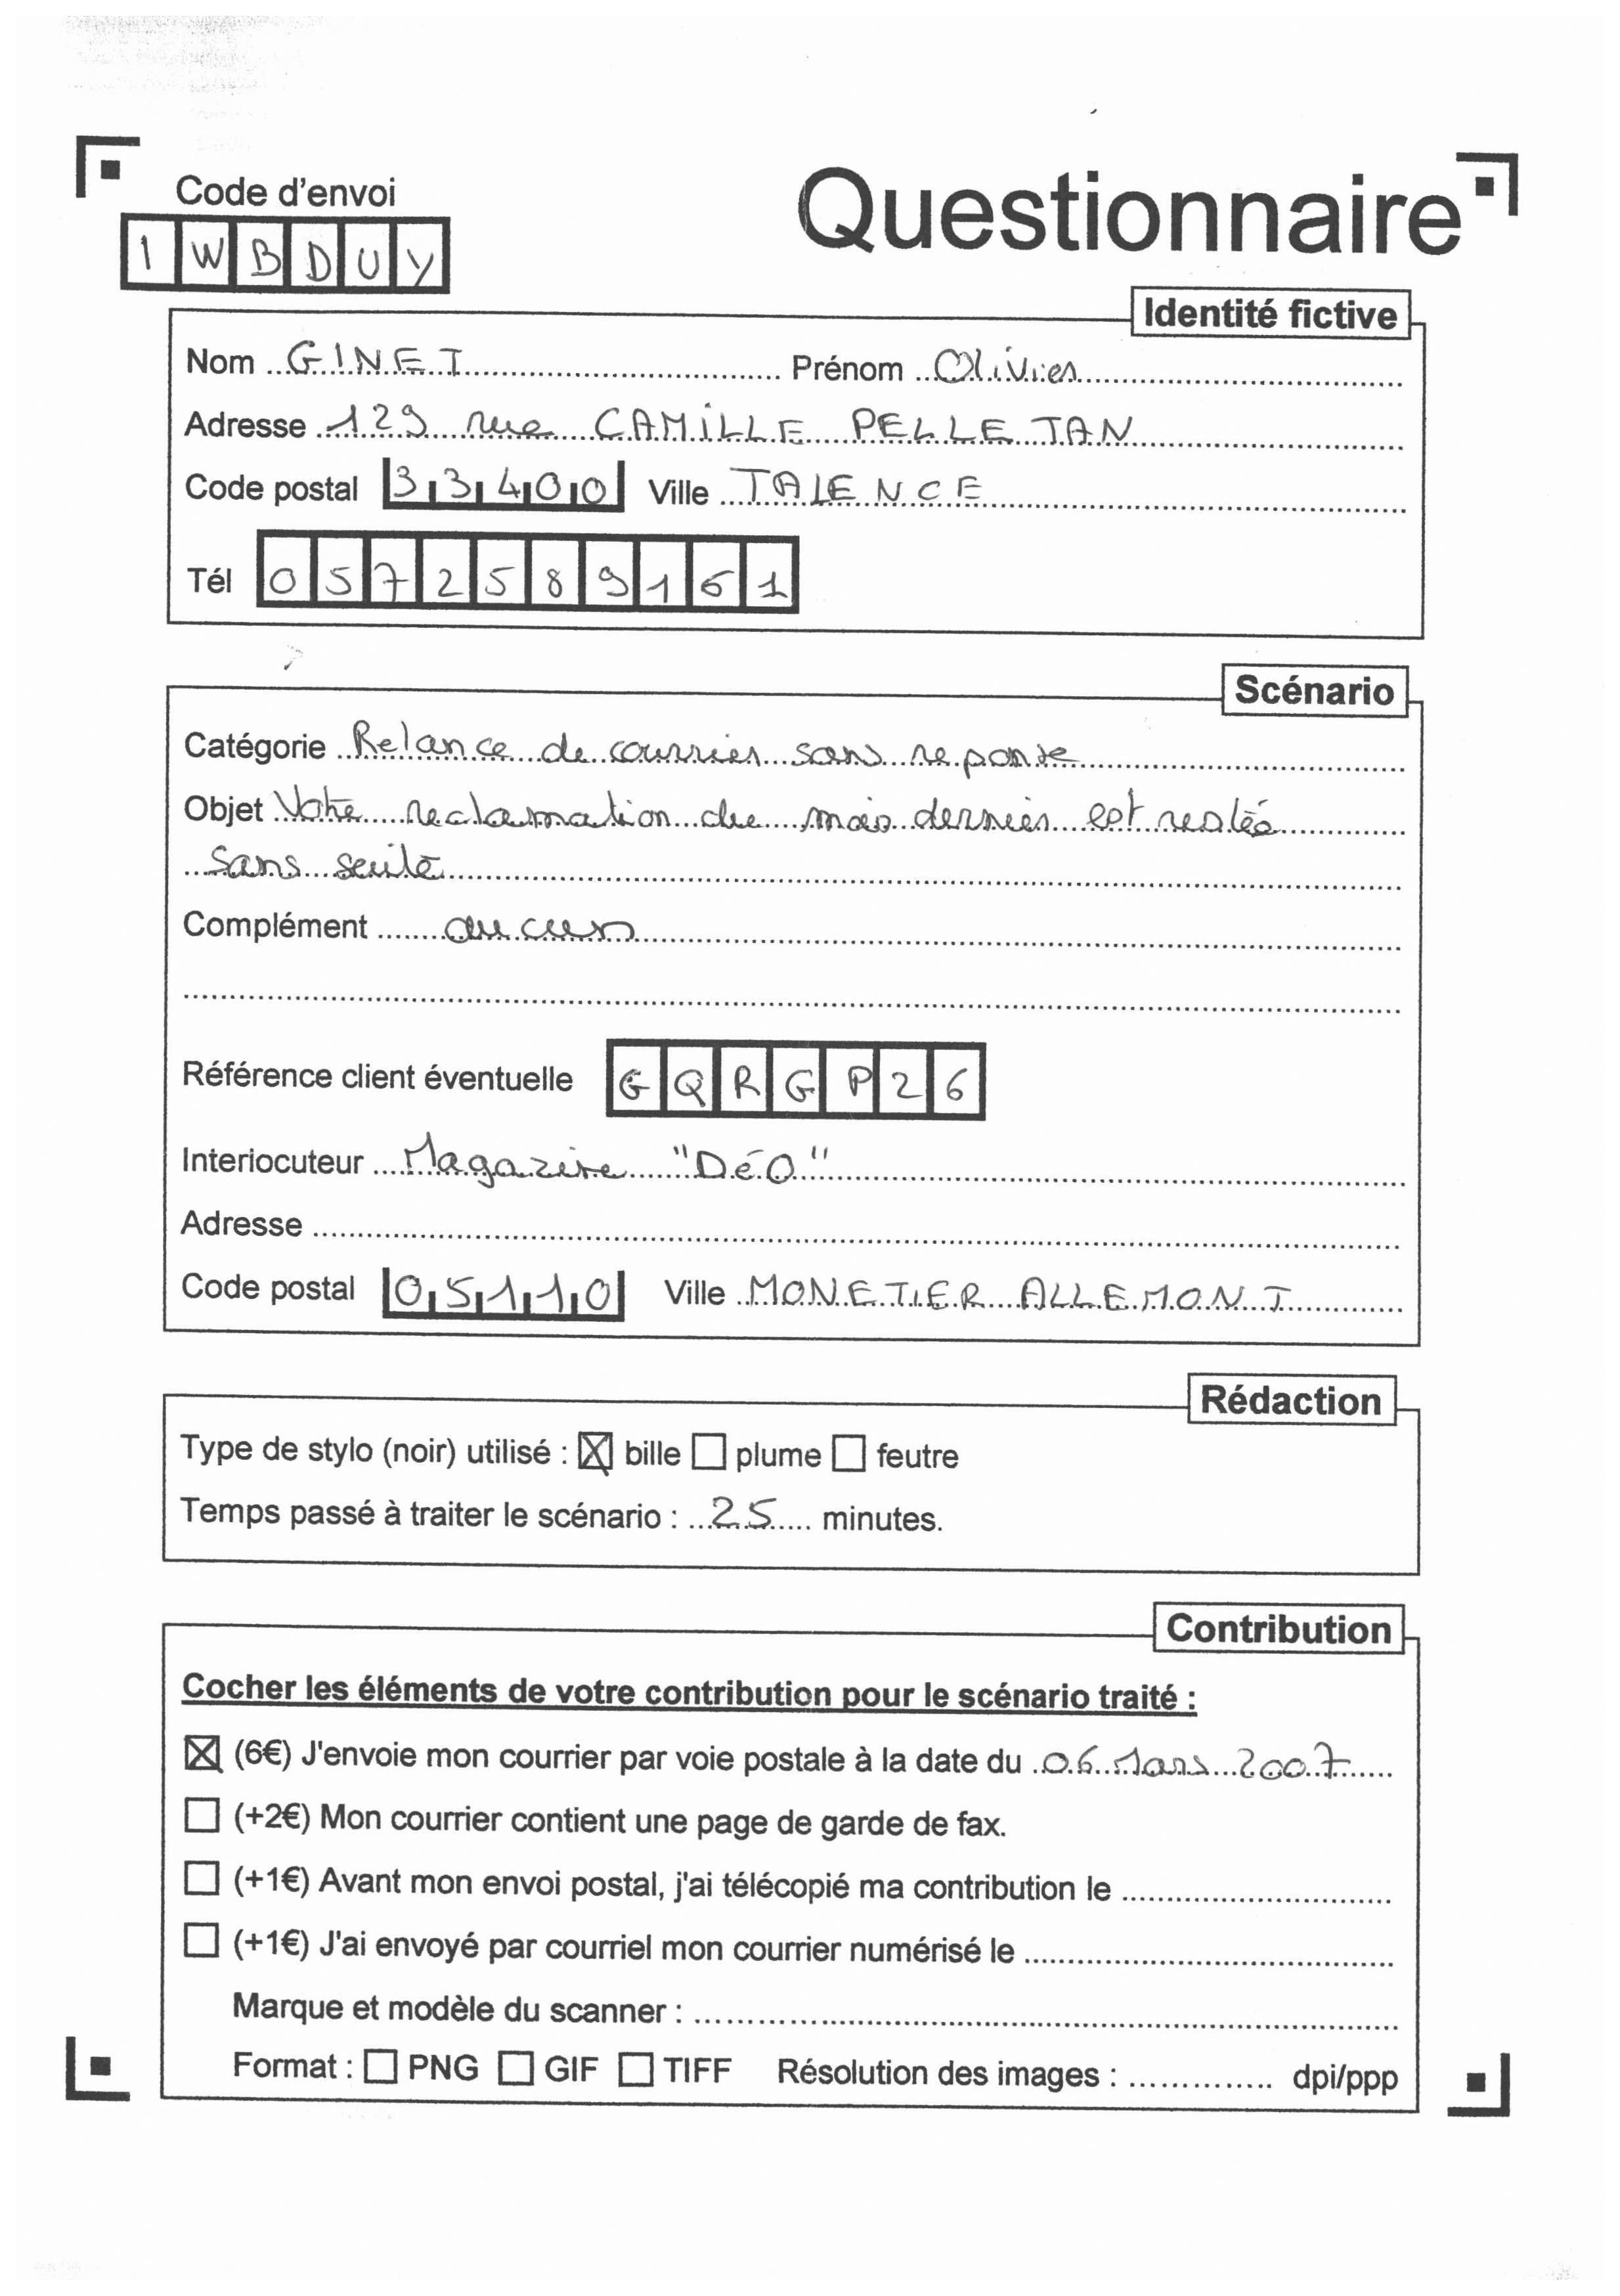 Code d'envoi
Questionnaire
1WBDUY
Identité fictive
Nom GINET Prénom Olivier
Adresse 129 rue CAMILLE PELLETAN
Code postal 33400 Ville TALENCE
Tél 0572589161
Scénario
Catégorie Relance de courrier sans reponse
Objet Votre reclamation du mois dernier est restée
sans suite
Complément aucun
Référence client éventuelle GQRGP26
Interiocuteur Magazine "DéO"
Adresse
Code postal 05110 Ville MONETIER ALLEMONT
Rédaction
Type de stylo (noir) utilisé : bille plume feutre
Temps passé à traiter le scénario : 25 minutes.
Contribution
Cocher les éléments de votre contribution pour le scénario traité :
(6€) J'envoie mon courrier par voie postale à la date du 06 Mars 2007
(+2€) Mon courrier contient une page de garde de fax.
(+1€) Avant mon envoi postal, j'ai télécopié ma contribution le
(+1€) J'ai envoyé par courriel mon courrier numérisé le
Marque et modèle du scanner :
Format : PNG GIF TIFF Résolution des images : dpi/ppp